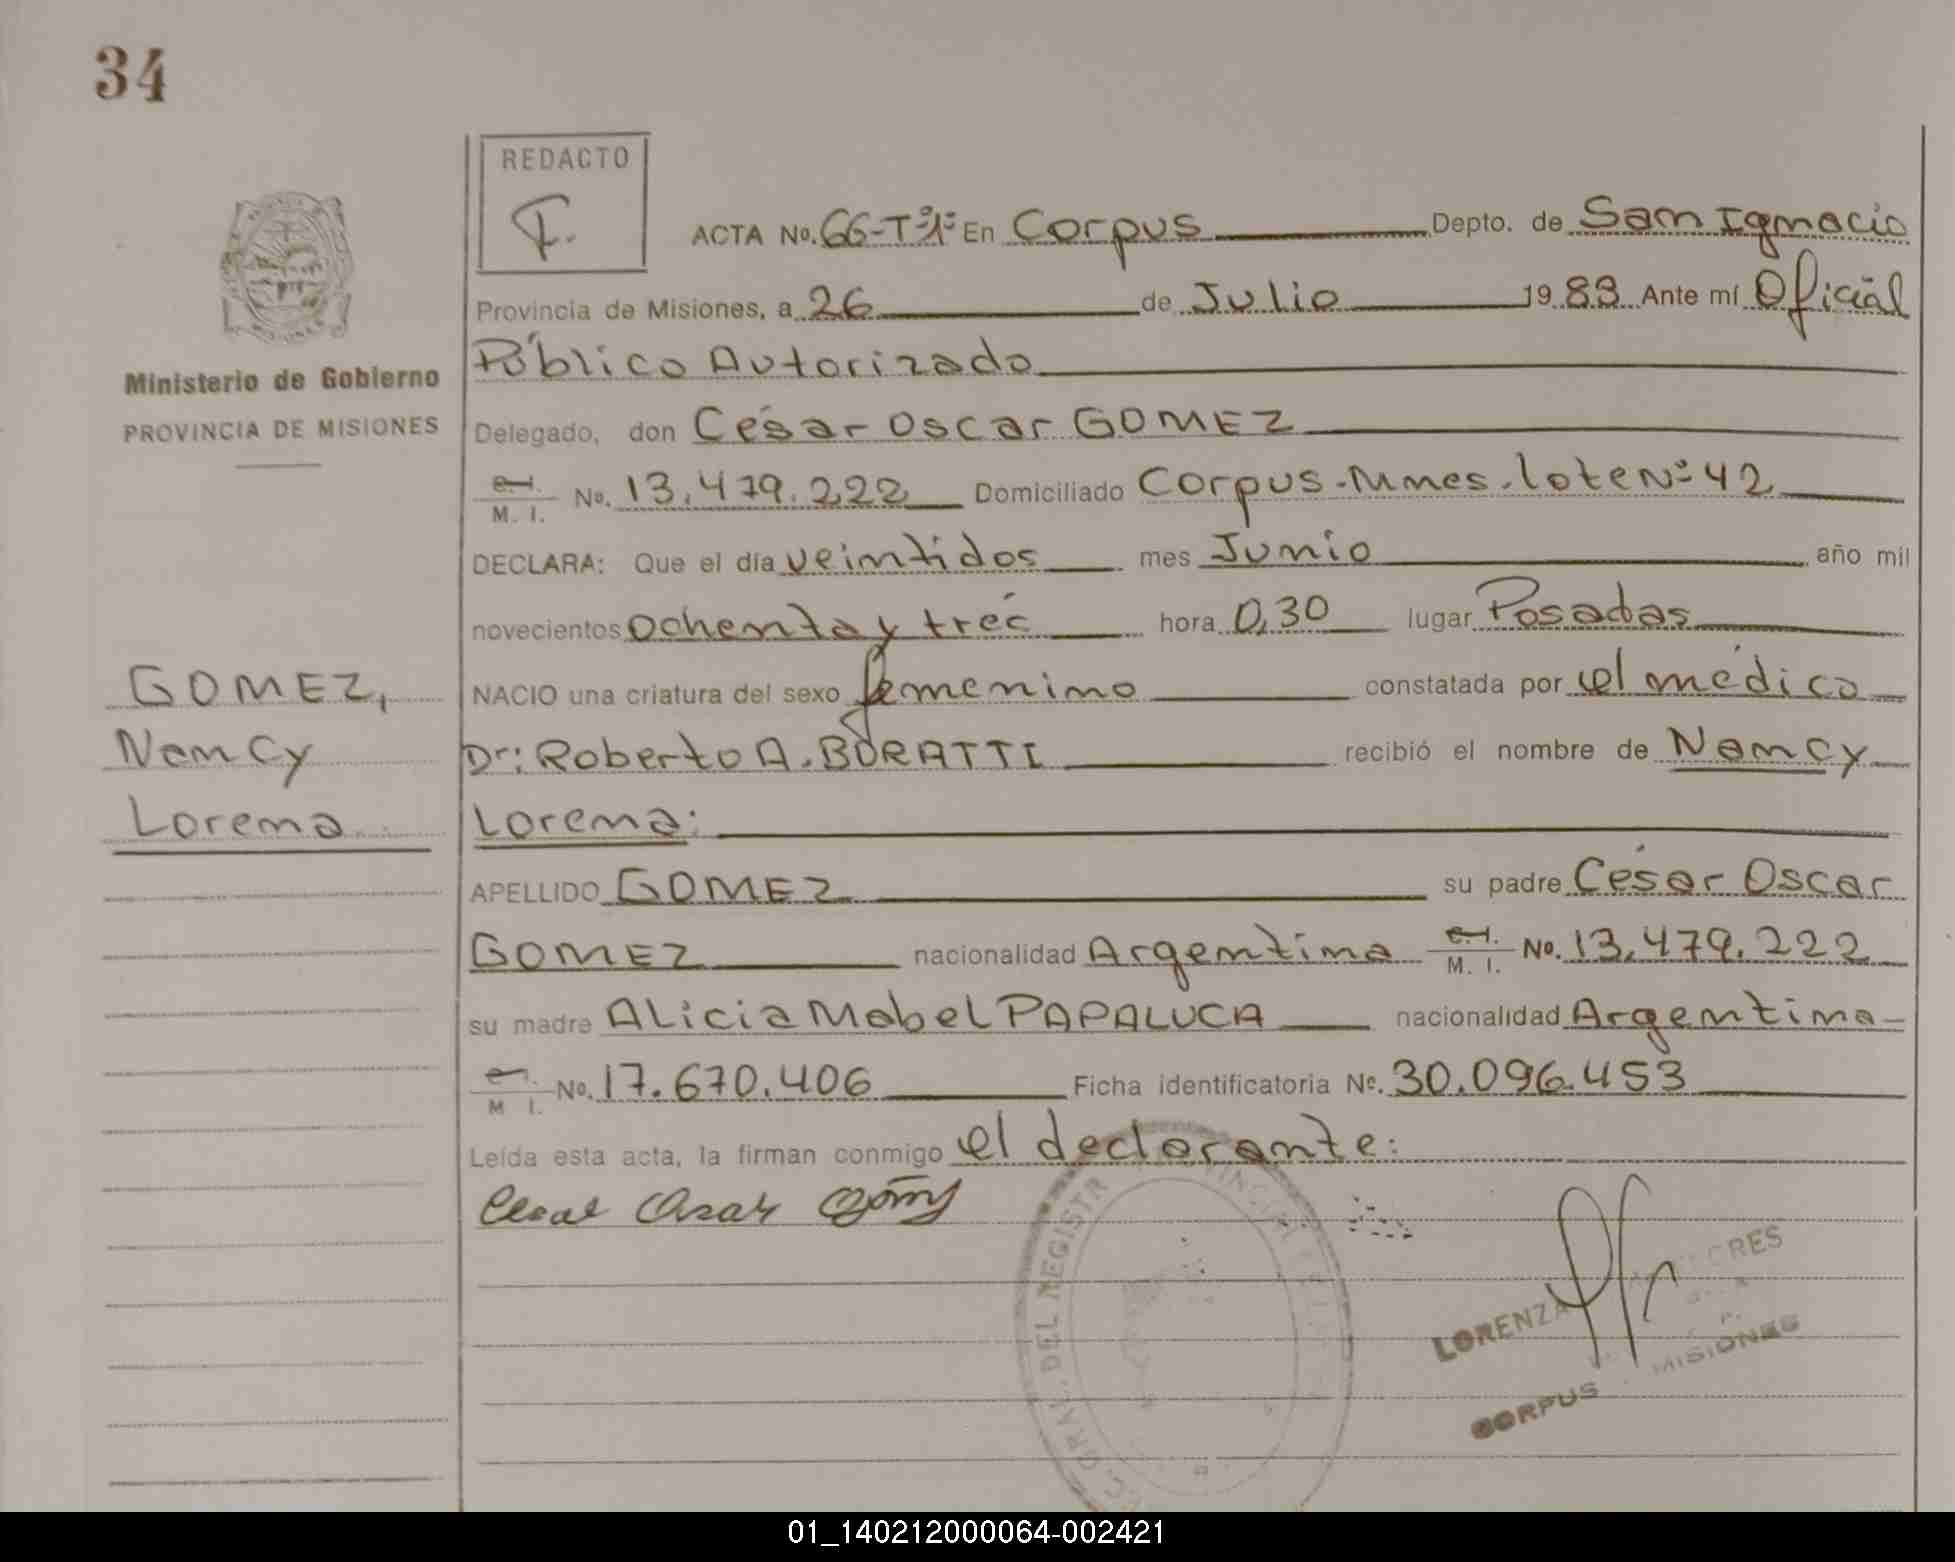 34
REDACTO
F.
ACTA No. 66-Tº1º En Corpus Depto. de San Ignacio
Provincia de Misiones, a 26 de Julio 1983 Ante mí Oficial
Ministerio de Gobierno
PROVINCIA DE MISIONES
Público Autorizado
Delegado, don César Oscar GOMEZ
C.I. M. I. No. 13.479.222 Domiciliado Corpus-Mnes. lote Nº 42
DECLARA: Que el día veintidos mes Junio año mil
novecientos ochenta y tres hora 0,30 lugar Posadas
GOMEZ,
Nancy
Lorena
NACIO una criatura del sexo femenino constatada por el médico
Dr: Roberto A. BORATTI recibió el nombre de Nancy
Lorena:
APELLIDO GOMEZ su padre César Oscar
GOMEZ nacionalidad Argentina C.I. M. I. No. 13.479.222
su madre Alicia Mabel PAPALUCA nacionalidad Argentina
M I. No. 17.670.406 Ficha identificatoria No. 30.096.453
Leída esta acta, la firman conmigo el declarante:
Cesar Oscar Gómez
GRAL. DEL REGISTR
LORENZA
CORPUS MISIONES
01_140212000064-002421